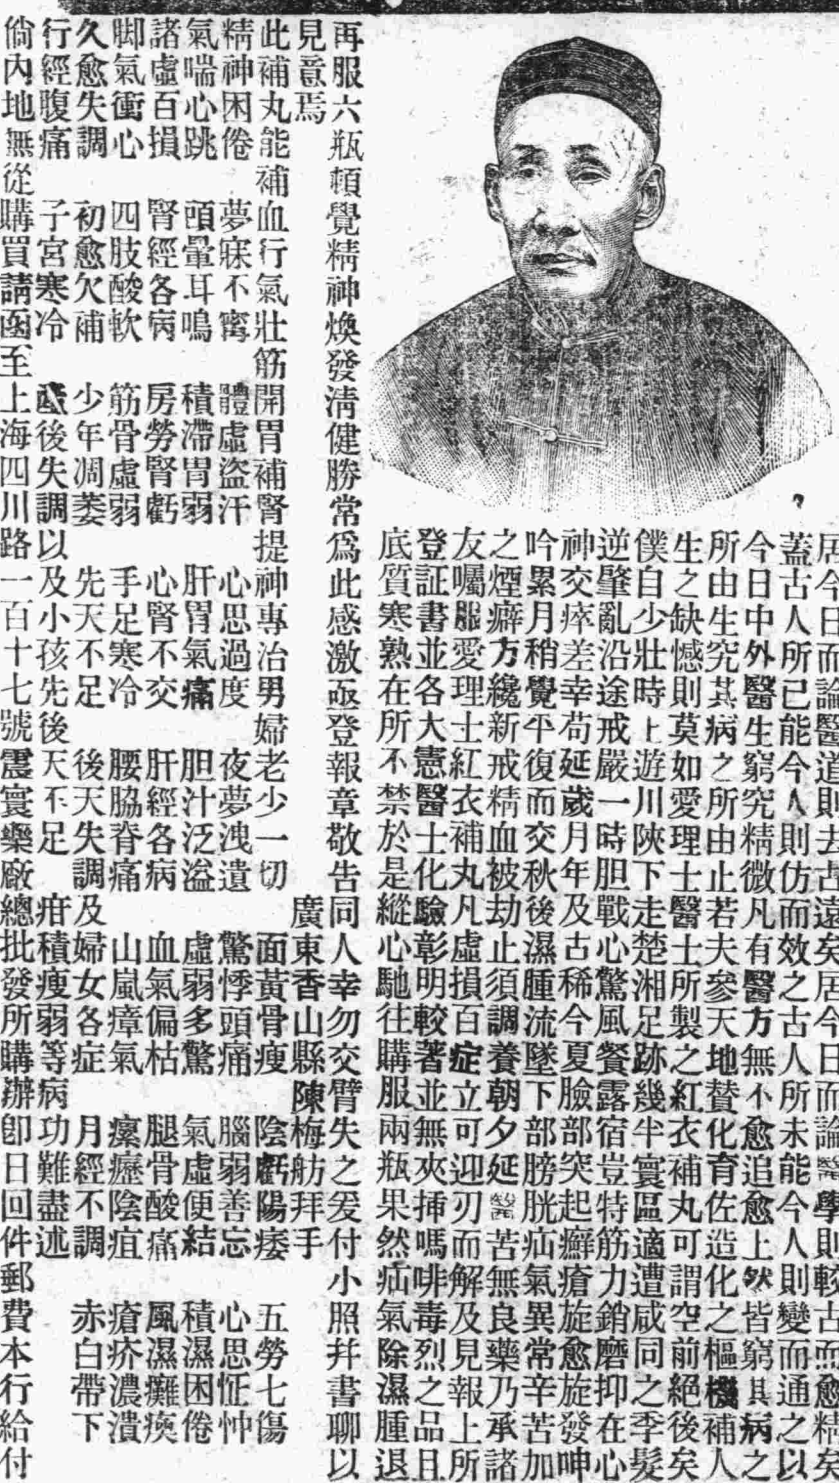 居今日而論醫道則去古遠矣居今日而論醫學則較古而愈精矣
蓋古人所已能今人則仿而效之古人所未能今人則變而通之以
今日中外醫生窮究精微凡有醫方無不愈追愈上然皆窮其病之
所由生究其病之所由止若夫參天地贊化育佐造化之樞機補人
生之缺憾則莫如愛理士醫士所製之紅衣補丸可謂空前絕後矣
僕自少壯時上遊川陝下走楚湘足跡幾半寰區適遭咸同之季髮
逆肇亂沿途戒嚴一時胆戰心驚風餐露宿豈特筋力銷磨抑在心
神交瘁差幸苟延歲月年及古稀今夏臉部突起癬瘡旋愈旋發呻
吟累月稍覺平復而交秋後濕腫流墜下部膀胱疝氣異常辛苦加
之煙癖方纔新戒精血被劫止須調養朝夕延醫苦無良藥乃承諸
友囑服愛理士紅衣補丸凡虛損百症立可迎刃而解及見報上所
登証書並各大憲醫士化驗彰明較著並無夾揷嗎啡毒烈之品且
底質寒熟在所不禁於是縱心馳往購服兩瓶果然疝氣除濕腫退
再服六瓶頓覺精神煥發淸健勝常爲此感激亟登報章敬告同人幸勿交臂失之爰付小照幷書聊以
見意焉 廣東香山縣陳梅舫拜手
此補丸能補血行氣壯筋開胃補腎提神專治男婦老少一切 面黃骨瘦 陰虧陽痿 五勞七傷
精神困倦 夢寐不甯 體虛盜汗 心思過度 夜夢洩遺 驚悸頭痛 腦弱善忘 心思怔忡
氣喘心跳 頭暈耳鳴 積滯胃弱 肝胃氣痛 胆汁泛溢 虛弱多驚 氣虛便結 積濕困倦
諸虛百損 腎經各病 房勞腎虧 心腎不交 肝經各病 血氣偏枯 腿骨酸痛 風濕癱瘓
脚氣衝心 四肢酸軟 筋骨虛弱 手足寒冷 腰脇脊痛 山嵐瘴氣 瘰癧陰疽 瘡疥濃潰
久愈失調 初愈欠補 少年凋萎 先天不足 後天失調及婦女各症 月經不調 赤白帶下
行經腹痛 子宮寒冷 產後失調以及小孩先後天不足 疳積瘦弱等病功難盡述
倘內地無從購買請函至上海四川路一百十七號震寰藥廠總批發所購辦卽日回件郵費本行給付